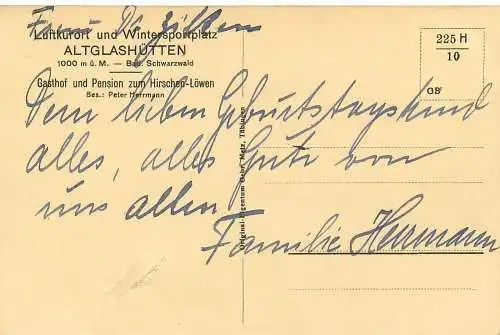 Frau Dr. Zilken
Luftkurort und Wintersportplatz
ALTGLASHÜTTEN
1000 m ü. M. — Bad. Schwarzwald
Gasthof und Pension zum Hirschen-Löwen
Bes.: Peter Herrmann
225 H
10
GB
Dem lieben Geburtstagskind
alles, alles Gute von
uns allen
Familie Herrmann
Original-Eigentum Gebr. Metz, Tübingen